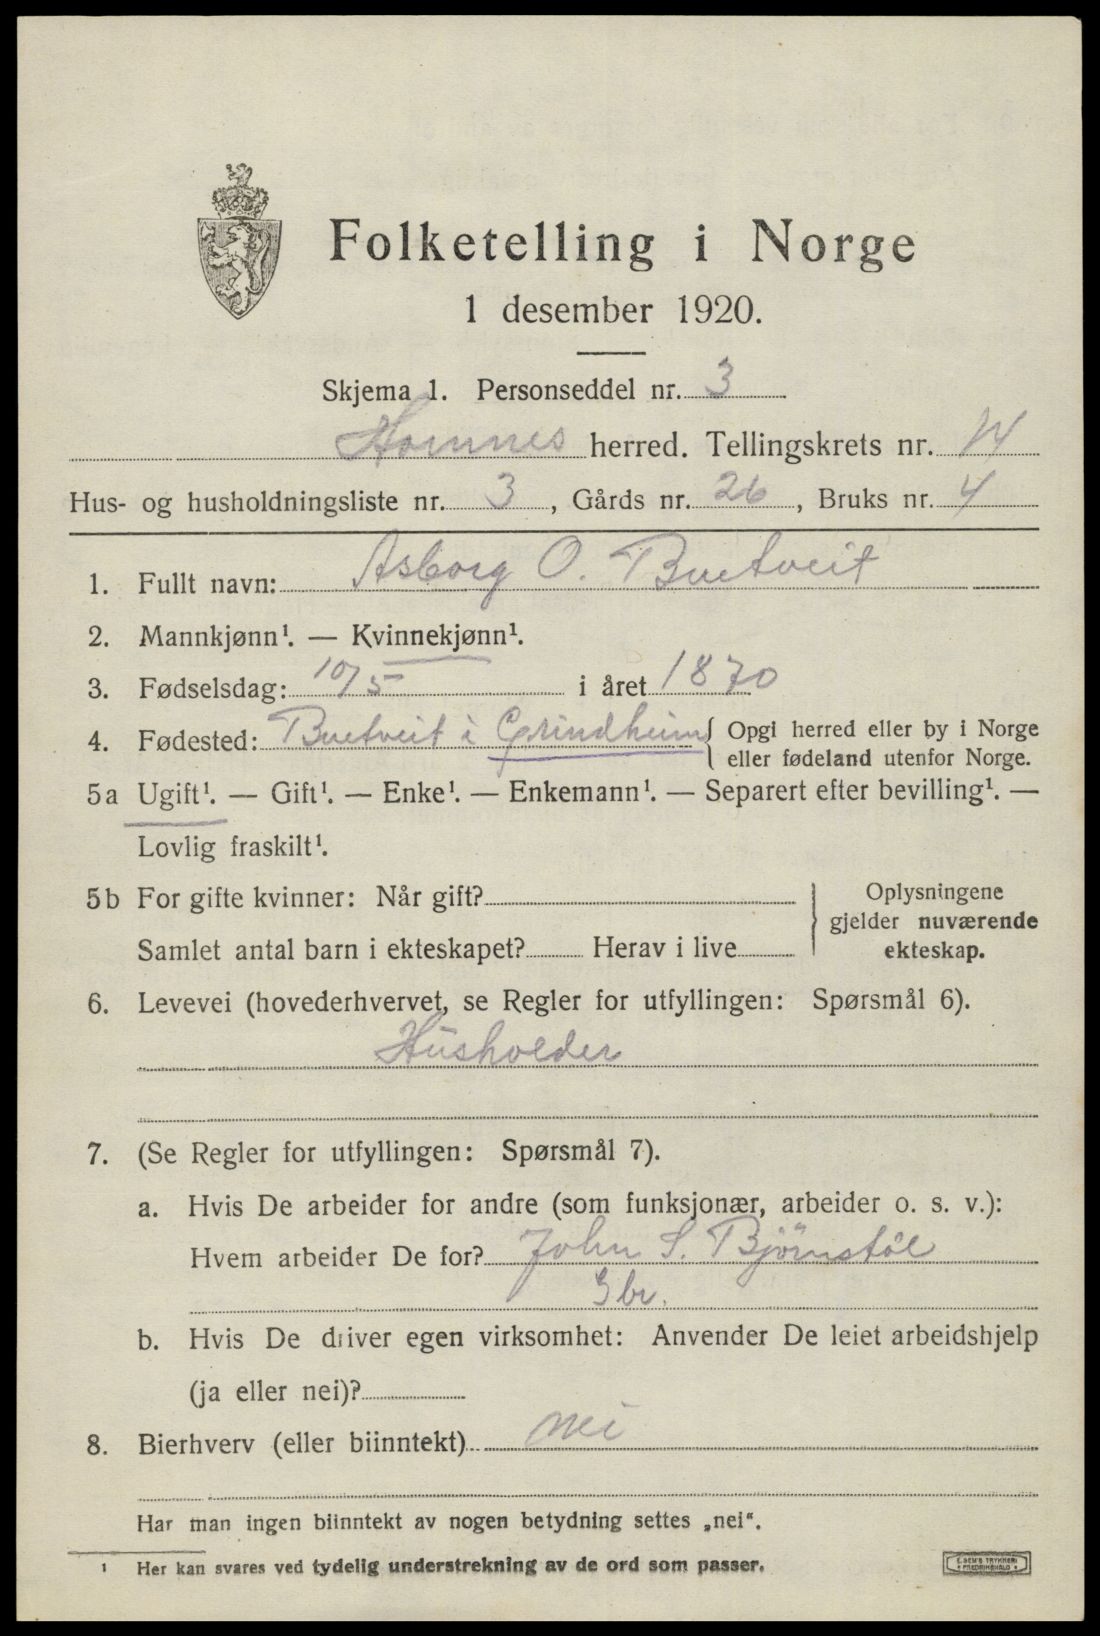 Folketelling i Norge
1 desember 1920.
Skjema 1. Personseddel nr. 3
Hornnes herred. Tellingskrets nr. 14
Hus- og husholdningsliste nr. 3, Gårds nr. 26, Bruks nr. 4
1. Fullt navn: Asborg O. Buetveit
2. Mannkjønn¹. — Kvinnekjønn¹.
3. Fødselsdag: 10/5 i året 1870
4. Fødested: Buetveit i Grindheim { Opgi herred eller by i Norge
eller fødeland utenfor Norge.
5a Ugift¹. — Gift¹. — Enke¹. — Enkemann¹. — Separert efter bevilling¹. —
Lovlig fraskilt¹.
5b For gifte kvinner: Når gift?
Samlet antal barn i ekteskapet? Herav i live
Oplysningene
gjelder nuværende
ekteskap.
6. Levevei (hovederhvervet, se Regler for utfyllingen: Spørsmål 6).
Husholder
7. (Se Regler for utfyllingen: Spørsmål 7).
a. Hvis De arbeider for andre (som funksjonær, arbeider o. s. v.):
Hvem arbeider De for? John S. Bjørnstøl
Gbr.
b. Hvis De driver egen virksomhet: Anvender De leiet arbeidshjelp
(ja eller nei)?
8. Bierhverv (eller biinntekt) nei
Har man ingen biinntekt av nogen betydning settes „nei“.
¹ Her kan svares ved tydelig understrekning av de ord som passer.
E. SEM'S TRYKKERI
FREDRIKSHALD